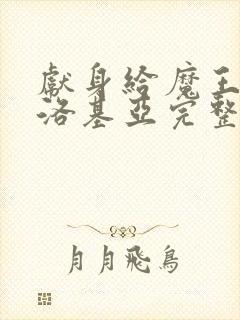 獻身給魔王
洛基亞完整
月月飛鳥